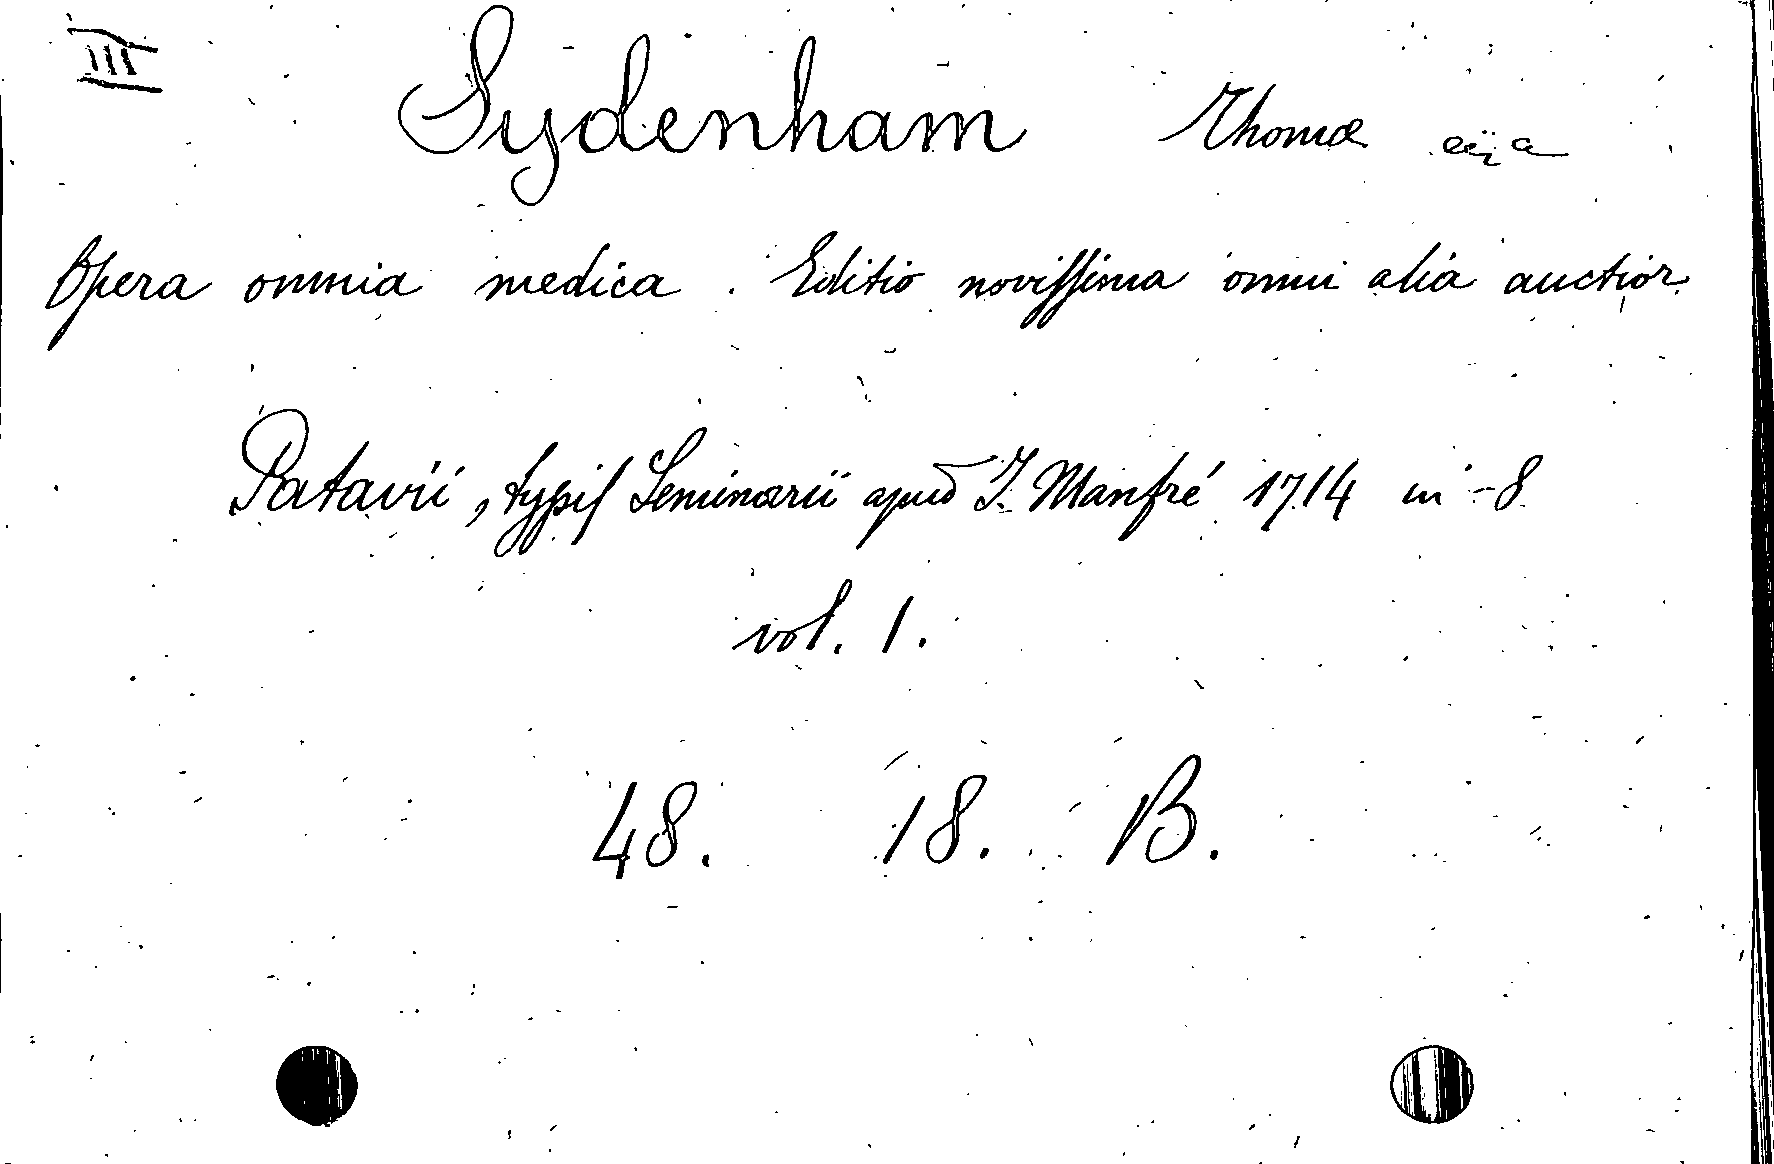 III
Sydenham Thomæ
Opera omnia medica. Editio novissima omni alia auctior
Patavii, typis Seminarii apud J. Manfré 1714 in-8
vol. 1.
48. 18. B.